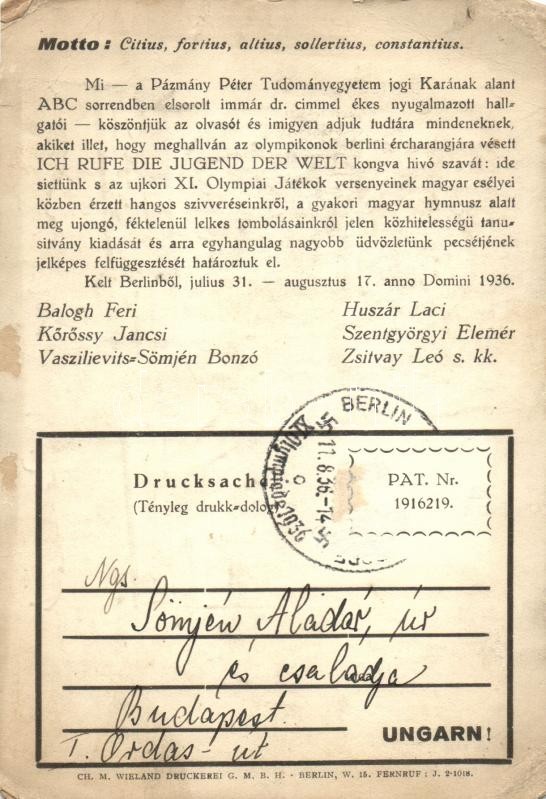 Motto: Citius, fortius, altius, sollertius, constantius.
Mi — a Pázmány Péter Tudományegyetem jogi Karának alant
ABC sorrendben elsorolt immár dr. cimmel ékes nyugalmazott hall-
gatói — köszöntjük az olvasót és imigyen adjuk tudtára mindeneknek,
akiket illet, hogy meghallván az olympikonok berlini ércharangjára vésett
ICH RUFE DIE JUGEND DER WELT kongva hivó szavát: ide
siettünk s az ujkori XI. Olympiai Játékok versenyeinek magyar esélyei
közben érzett hangos szivveréseinkről, a gyakori magyar hymnusz alatt
meg ujongó, féktelenül lelkes tombolásainkról jelen közhitelességü tanu-
sitvány kiadását és arra egyhangulag nagyobb üdvözletünk pecsétjének
jelképes felfüggesztését határoztuk el.
Kelt Berlinből, julius 31. — augusztus 17. anno Domini 1936.
Balogh Feri
Huszár Laci
Kőrőssy Jancsi
Szentgyörgyi Elemér
Vaszilievits-Sömjén Bonzó
Zsitvay Leó s. kk.
BERLIN
XI. Olympiade 1936
11.8.36.-14
Drucksache
(Tényleg drukk-dolog)
PAT. Nr.
1916219.
Ngs.
Sömjén Aladár, úr
és családja
Budapest.
I. Ordas-út
UNGARN!
CH. M. WIELAND DRUCKEREI G. M. B. H. · BERLIN, W. 15. FERNRUF: J. 2-1018.